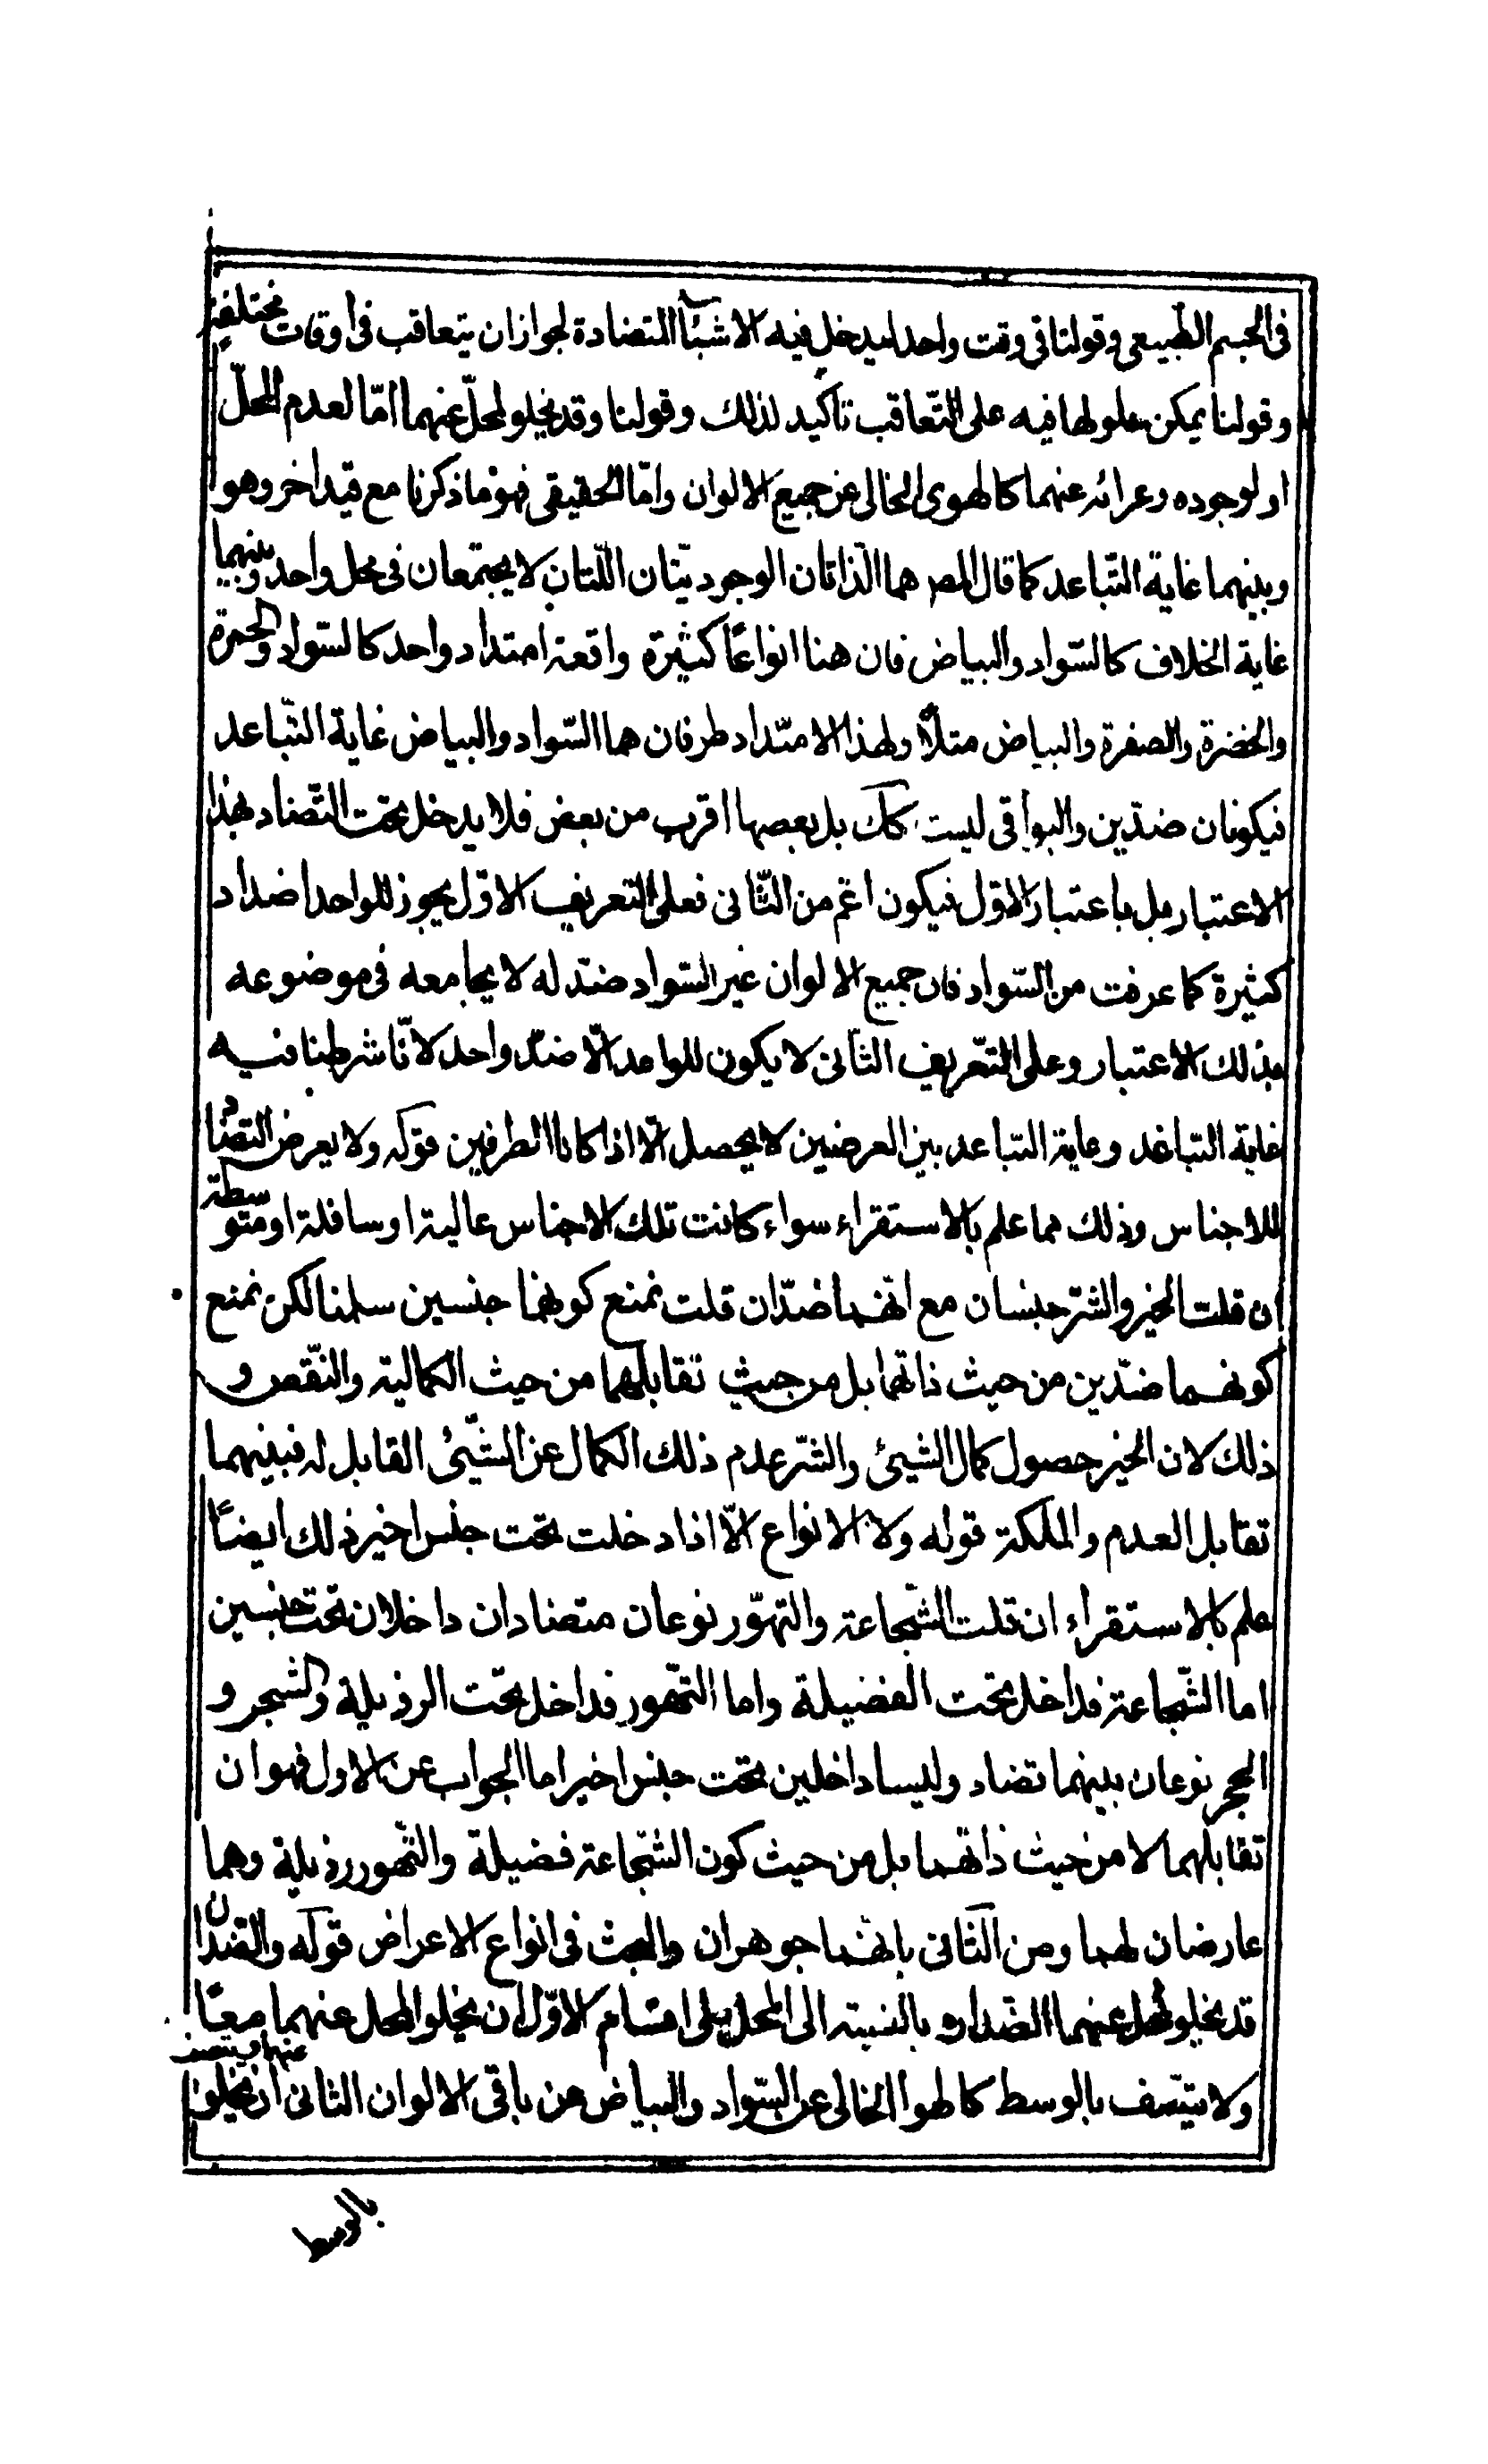 في الجسم الطّبيعي وقولنا في وقت واحد ليدخل فيه الاشيآ المتضادة لجواز ان يتعاقب في اوقات مختلفة
وقولنا يمكن حلولها فيه على التّعاقب تأكيد لذلك وقولنا وقد يخلو لمحلّ عنهما امّا لعدم المحلّ
او لوجوده وعرائه عنهما كالهوى الخالى عن جميع الالوان وامّا الحقيقي فهو ما ذكرنا مع قيد اخر وهو
وبينهما غاية التّباعد كما قال المص هما الّذاتان الوجوديتّان اللّتان لا يجتمعان في محل واحد وبينهما
غاية الخلاف كالسّواد والبياض فان هنا انواعًا كثيرة واقعة امتداد واحد كالسّواد والحمرة
والخضرة والصفرة والبياض مثلاً ولهذا الامتداد طرفان هما السّواد والبياض غاية التّباعد
فيكونان ضدّين والبواقي ليست كك بل بعصها اقرب من بعض فلا يدخل تحت التّضاد بهذا
الاعتبار بل باعتبار الاوّل فيكون اعّم من الثّانى فعلى التعريف الاوّل يجوز للواحد اضداد
كثيرة كما عرفت من السّواد فان جميع الالوان غير السّواد ضدّ له لا يجامعه في موضوعه
بذلك الاعتبار وعلى التّعريف الثّانى لا يكون للواحد الّا ضدّ واحد لانّا شرطنا فيه
غاية التباعد وغاية التباعد بين العرضين لا يحصل الّا اذا كانا الطرفين قوله ولا يعرض التضاد
للاجناس وذلك مما علم بالاستقراء سواء كانت تلك الاجناس عالية او سافلة او متوسطة
ان قلت الخير والشّر جنسان مع انّهما ضدّان قلت نمنع كونهما جنسين سلمنا لكن نمنع
كونهما ضدّين من حيث ذاتهما بل من حيث تقابلهما من حيث الكمالية والنّقص و
ذلك لان الخير حصول كمال الشيئ والشّر عدم ذلك الكمال عن الشّيئ القابل له فبينهما
تقابل العدم والملكة قوله ولا الانواع الّا اذا دخلت تحت جنس اخير ذلك ايضًا
علم بالاستقراء ان قلت الشّجاعة والتهوّر نوعان متضادان داخلان تحت جنسين
اما الشّجاعة فداخل تحت الفضيلة واما التّهور فداخل تحت الرذيلة والشجر و
الحجر نوعان بينهما تضاد وليسا داخلين تحت جنس اخير اما الجواب عن الاول فهو ان
تقابلهما لا من حيث ذاتهما بل من حيث كون الشّجاعة فضيلة والتّهور رذيلة وهما
عارضان لهما ومن الثّانى بانهما جوهران والبحث في انواع الاعراض قوله والضدان
قد يخلو لمحل عنهما الضّدان بالنسبة الى المحل على اقسام الاوّل ان يخلو المحل عنهما معًا
ولا يتّصف بالوسط كالهوا الخالى عن السّواد والبياض من باقي الالوان الثانى ان يخلو عنهما ويتصف
بالوسط